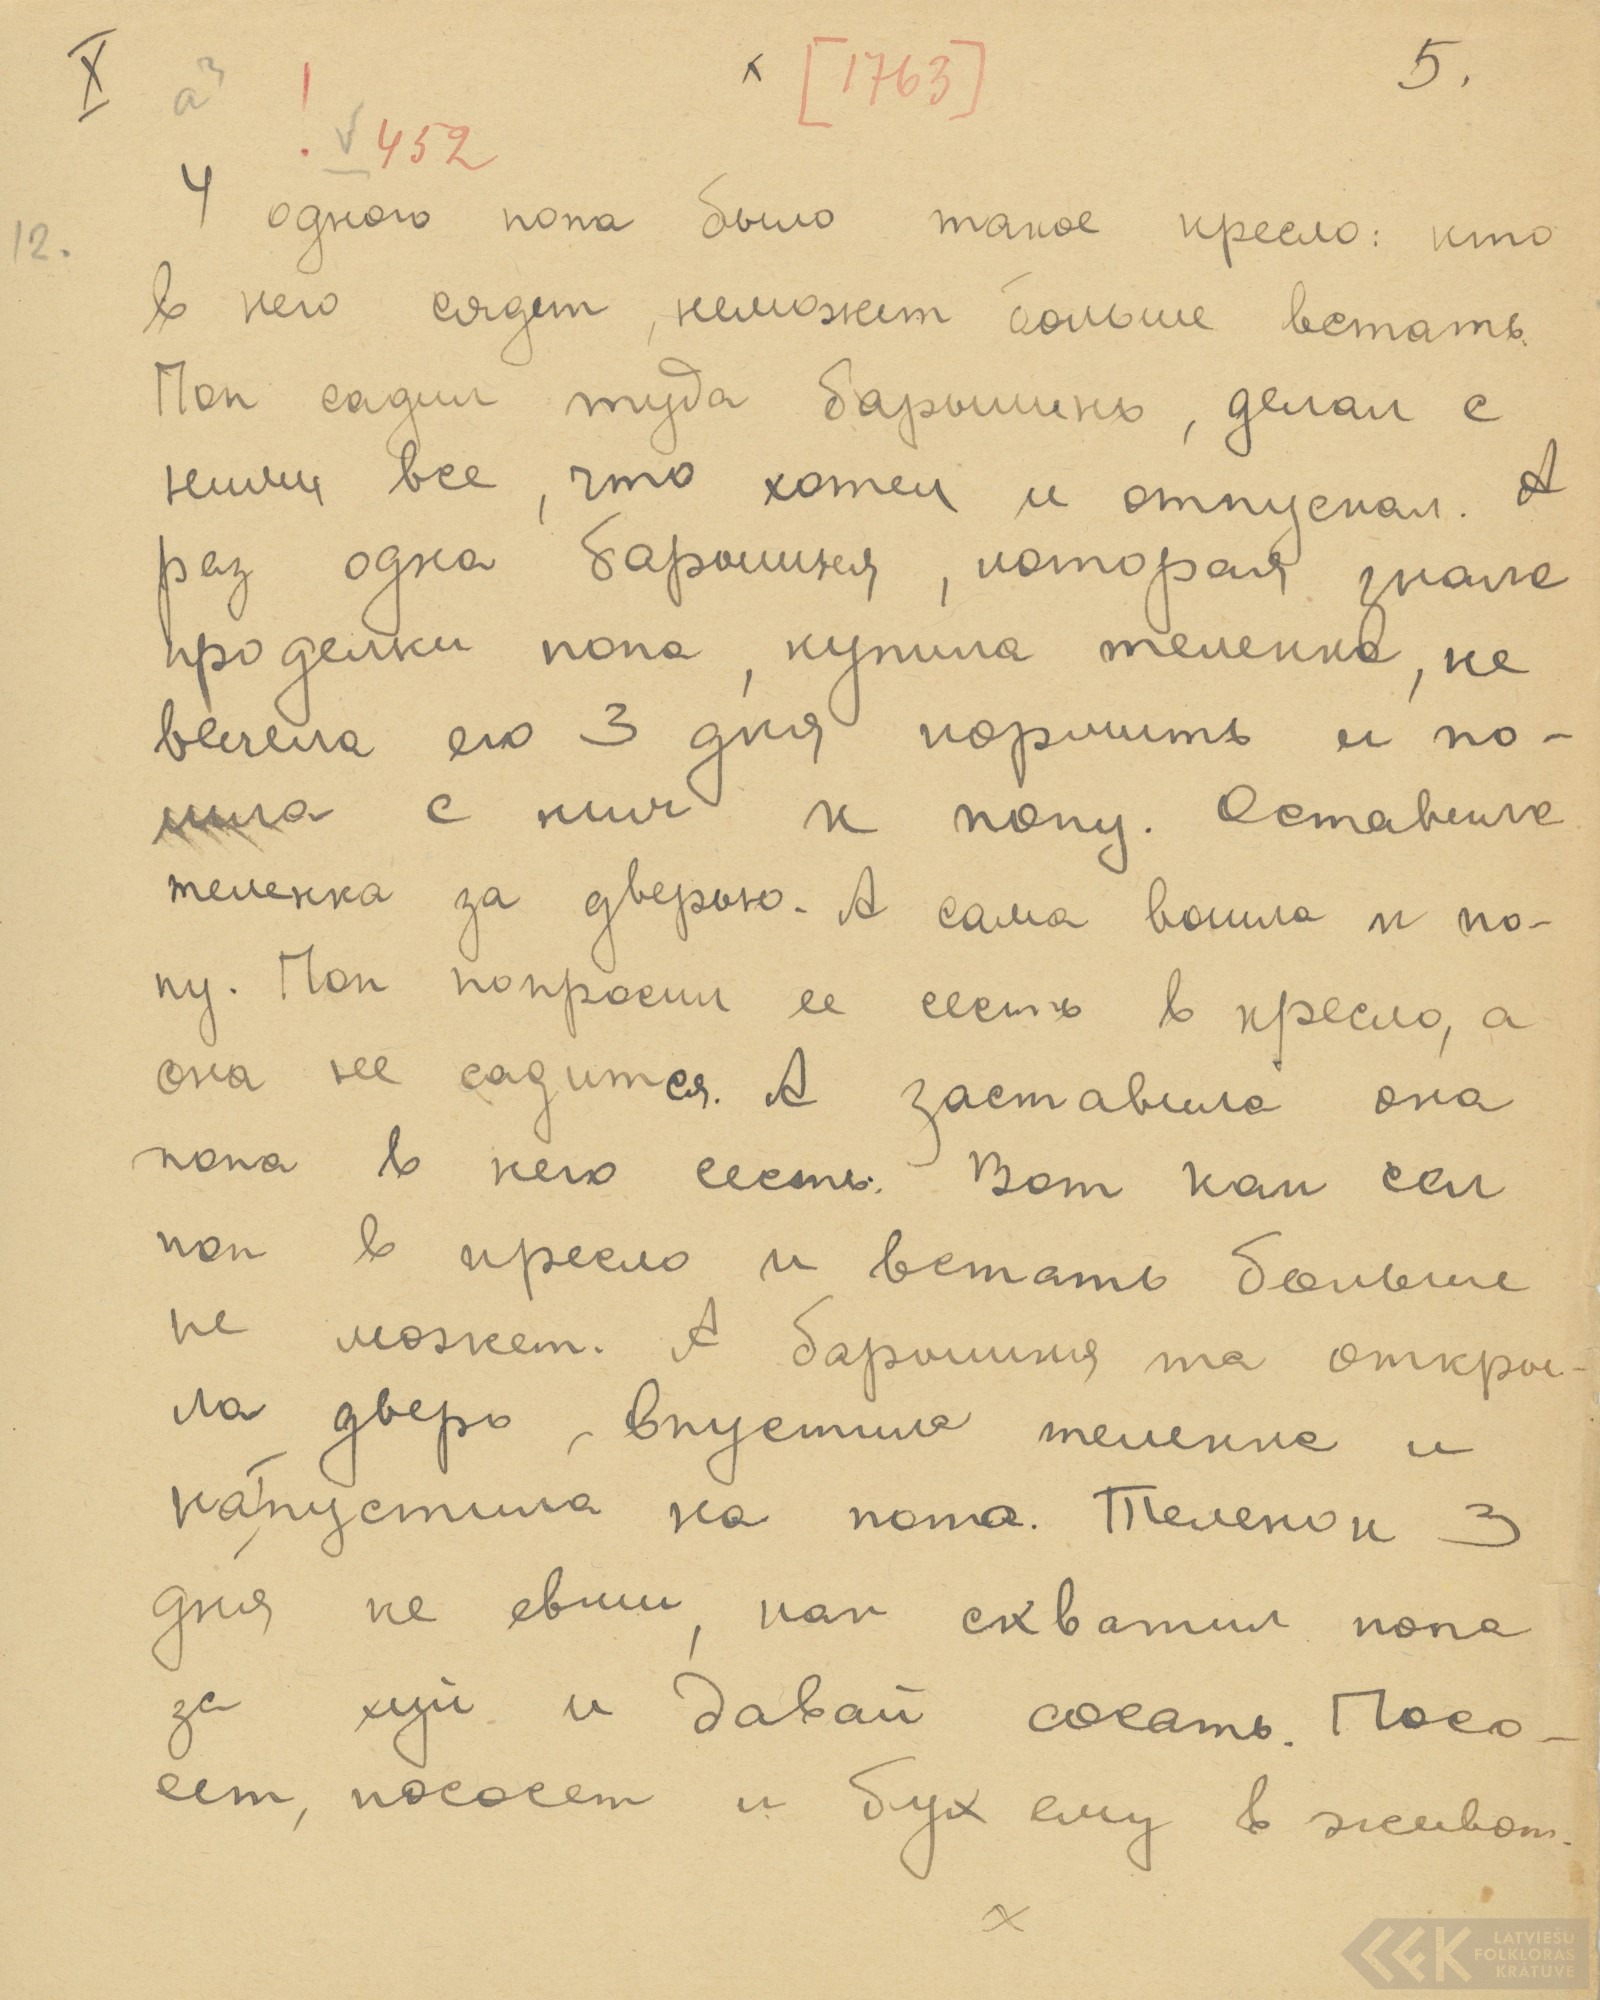 X a³ ! х [1763] 5.
√ 452
У одного попа было такое кресло: кто
12.
в него сядет, неможет больше встать.
Поп садил туда барышень, делал с
ними все, что хотел и отпускал. А
раз одна барышня, которая знала
проделки попа, купила теленка, не
велела его 3 дня кормить и по-
шла с ним к попу. Оставила
теленка за дверью. А сама вошла к по-
пу. Поп попросил ее сесть в кресло, а
она не садится. А заставила она
попа в него сесть. Вот как сел
поп в кресло и встать больше
не может. А барышня та откры-
ла дверь, впустила теленка и
напустила на попа. Теленок 3
дня не евши, как схватил попа
за хуй и давай сосать. Посо-
сет, пососет и бух ему в живот.
х
LATVIEŠU
FOLKLORAS
KRĀTUVE